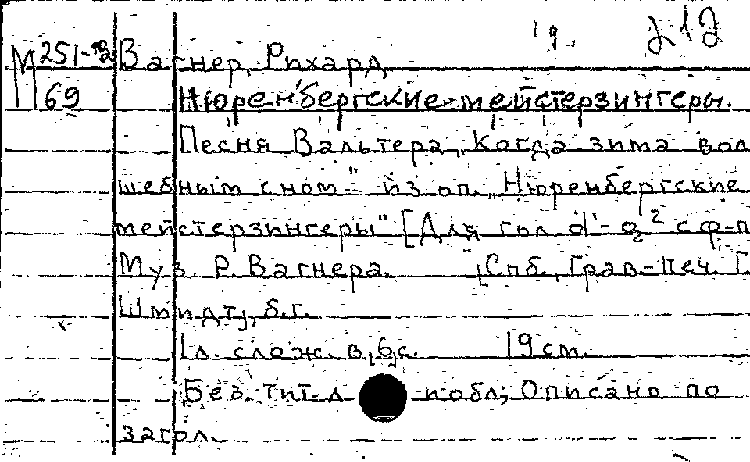 19. 212
М 251-
69
Вагнер, Рихард,
Нюренбергские мейстерзингеры.
Песня Вальтера „Когда зима вол
шебным сном" из оп. „Нюренбергские
мейстерзингеры" [Для гол. d'-g² с ф-п
Муз. Р. Вагнера. Спб., Грав-Печ. Г.
Шмидт, б.г.
1л. слож. в 6с. 19 см.
Без тит. л. и обл; Описано по
загол.